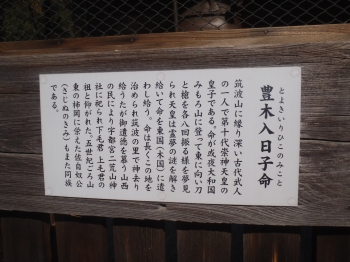 とよきいりひこのみこと
豊木入日子命
筑波山に縁り深い古代武人
の一人で第十代崇神天皇の
皇子である。命が或夜大和国
みもろ山に登って東に向い刀
と槍を各八回振る様を夢見
られ天皇は霊夢の謎を解き
給いて命を東国(木国)に遣
わし給う。命は長くこの地を
治められ筑波の里で神去り
給うたが御遺徳を慕う山西
の民により宇都宮二荒山神
社に祀られ下毛君 上毛君の
祖と仰がれた。五世紀ごろ山
東の柿岡に栄えた佐自奴公
(きじぬのきみ)もまた同族
である。